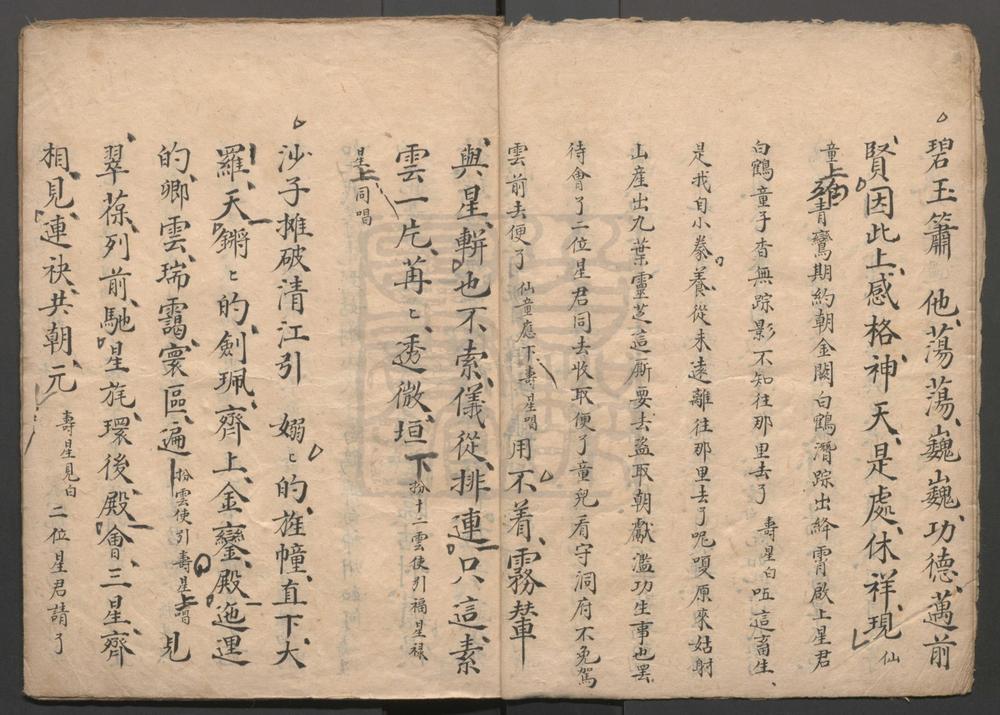 碧玉簫 他蕩蕩巍巍功德邁前
賢因此上感格神天是處休祥現 仙
童上白青鸞期約朝金闕白鶴潛踪出絳霄啟上星君
白鶴童子杳無踪影不知往那里去了 壽星白 呀這畜生
是我自小豢養從未遠離往那里去了呢嗄原來姑射
山產出九葉靈芝這厮要去盜取朝獻濫功生事也罷
待會了二位星君同去收取便了童兒看守洞府不免駕
雲前去便了 仙童應下壽星唱 用不着霧輦
與星軿也不索儀從排連只這素
雲一片苒〻透微垣下 扮十二雲使引福星祿
星上同唱
沙子攤破清江引 嫋〻的旌幢直下大
羅天鏘〻的劍珮齊上金鑾殿迤逦
的卿雲瑞靄寰區遍 扮雲使引壽星上唱 見
翠葆列前馳星旄環後殿會三星齊
相見連袂共朝元 壽星見白 二位星君請了